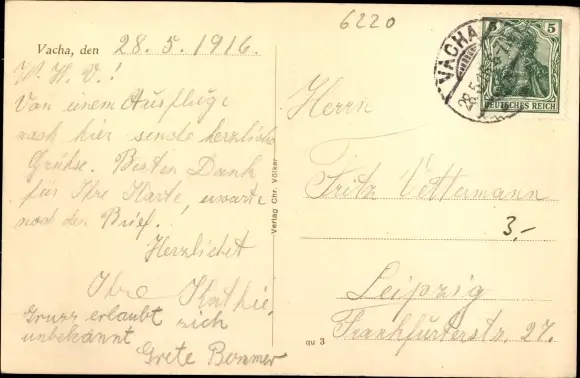 6220
Vacha, den 28.5.1916.
W. H. V.!
Von einem Ausfluge
nach hier sende herzliche
Grüße. Besten Dank
für Ihre Karte, erwarte
noch den Brief.
Herzlichst
Ihre Kathie
Gruss erlaubt sich
unbekannt
Grete Bommer
Verlag Chr. Völker
VACHA
28.5.
5 5
DEUTSCHES REICH
Herrn
Fritz Vettermann
3,-
Leipzig
Frankfurterstr. 27.
qu 3